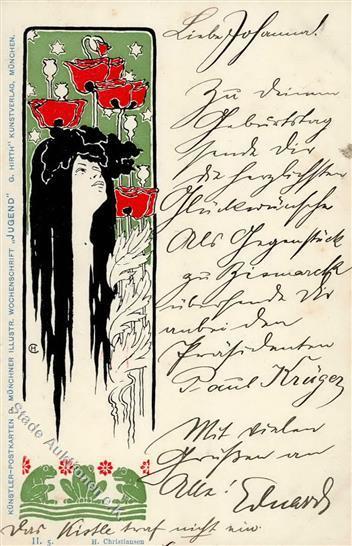 Liebe Johanna!
Zu deinem
Geburtstag
sende Dir
die herzlichsten
Glückwünsche
Als Gegenstück
zu Bismarck
übersende Dir
anbei den
Präsidenten
Paul Krüger
Mit vielen
Grüßen an
Alle! Eduard
Das Kistle traf nicht ein.
KÜNSTLER-POSTKARTEN D. MÜNCHNER ILLUSTR. WOCHENSCHRIFT „JUGEND" G. HIRTH' KUNSTVERLAG, MÜNCHEN.
II. 5. H. Christiansen